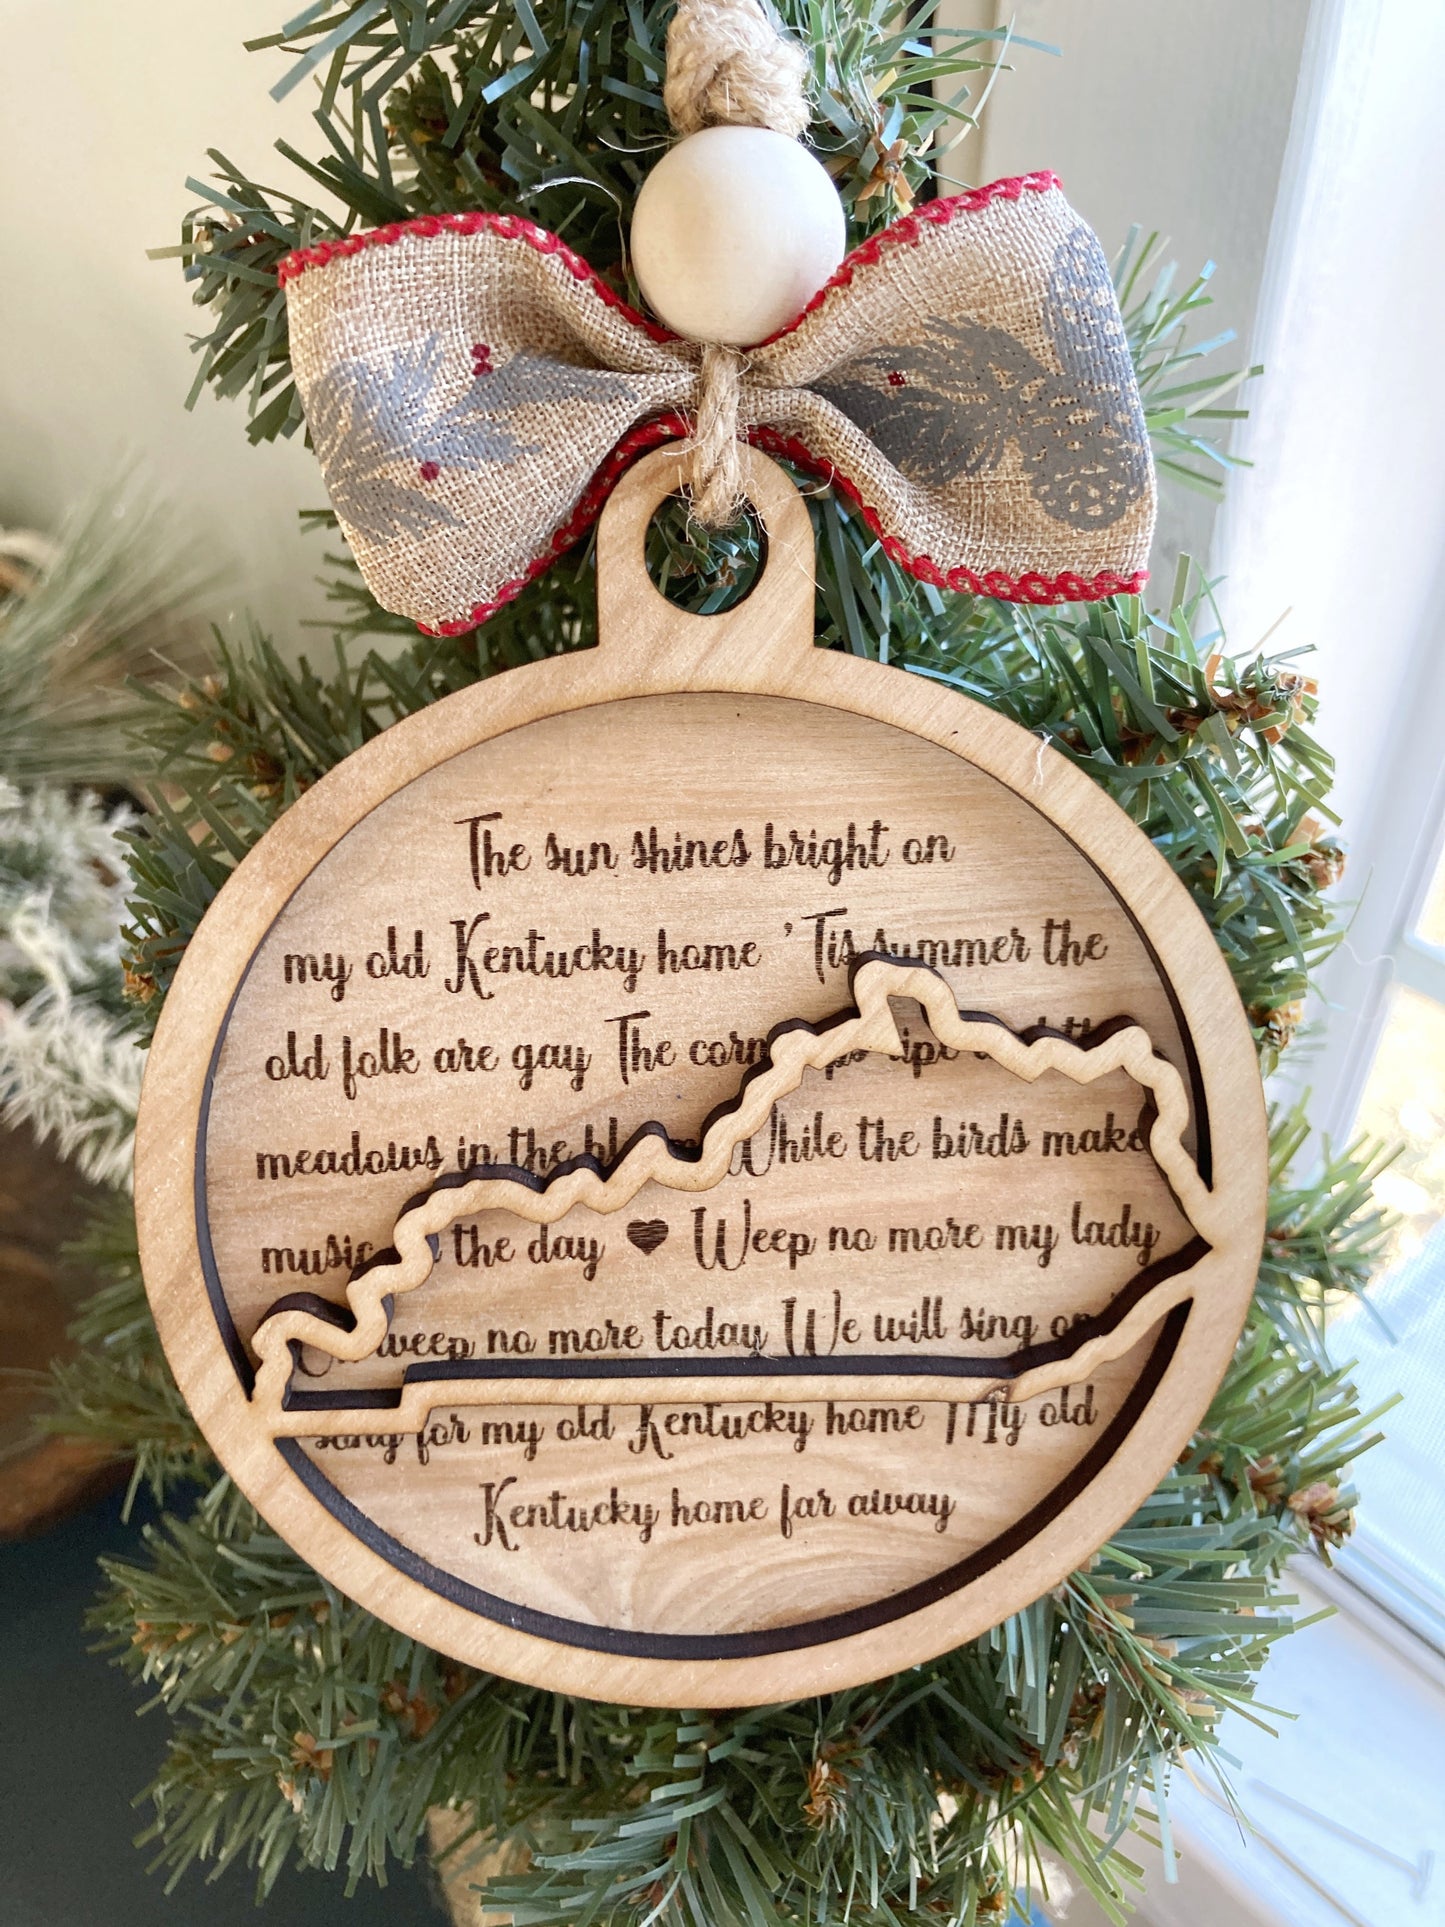 The sun shines bright on
my old Kentucky home 'Tis summer the
old folk are gay The corn ripe
meadows in the While the birds make
music the day ♥ Weep no more my lady
weep no more today We will sing on
song for my old Kentucky home My old
Kentucky home far away